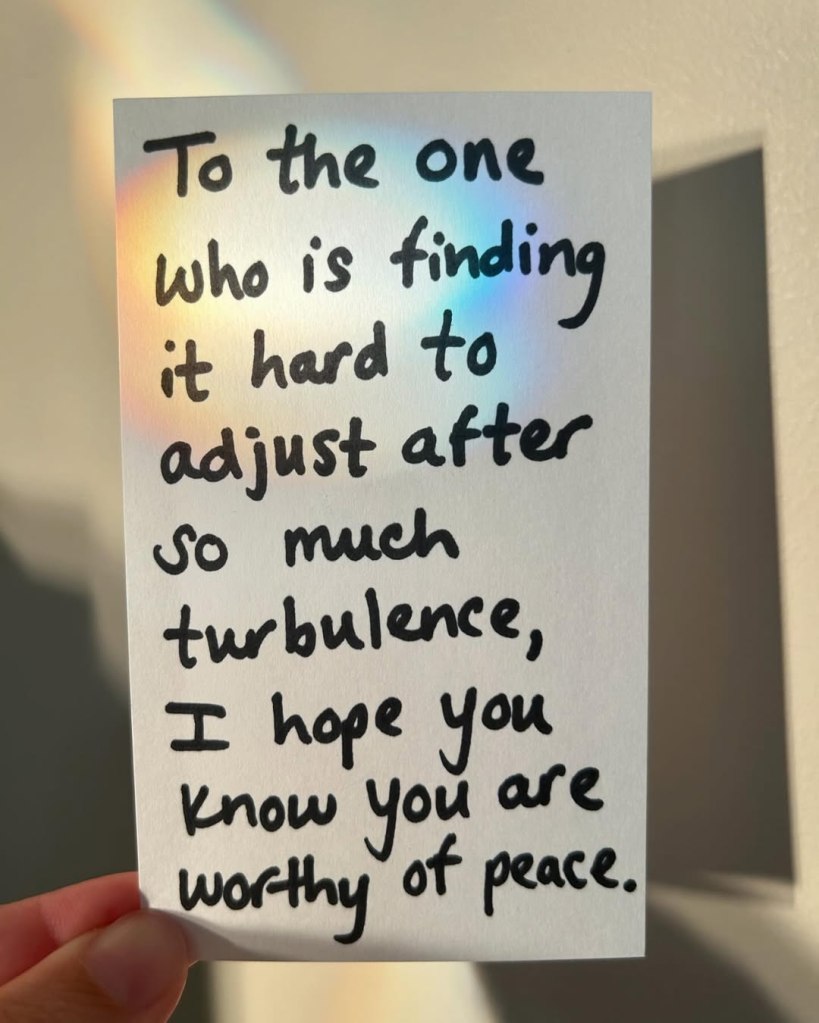 To the one
who is finding
it hard to
adjust after
so much
turbulence,
I hope you
know you are
worthy of peace.